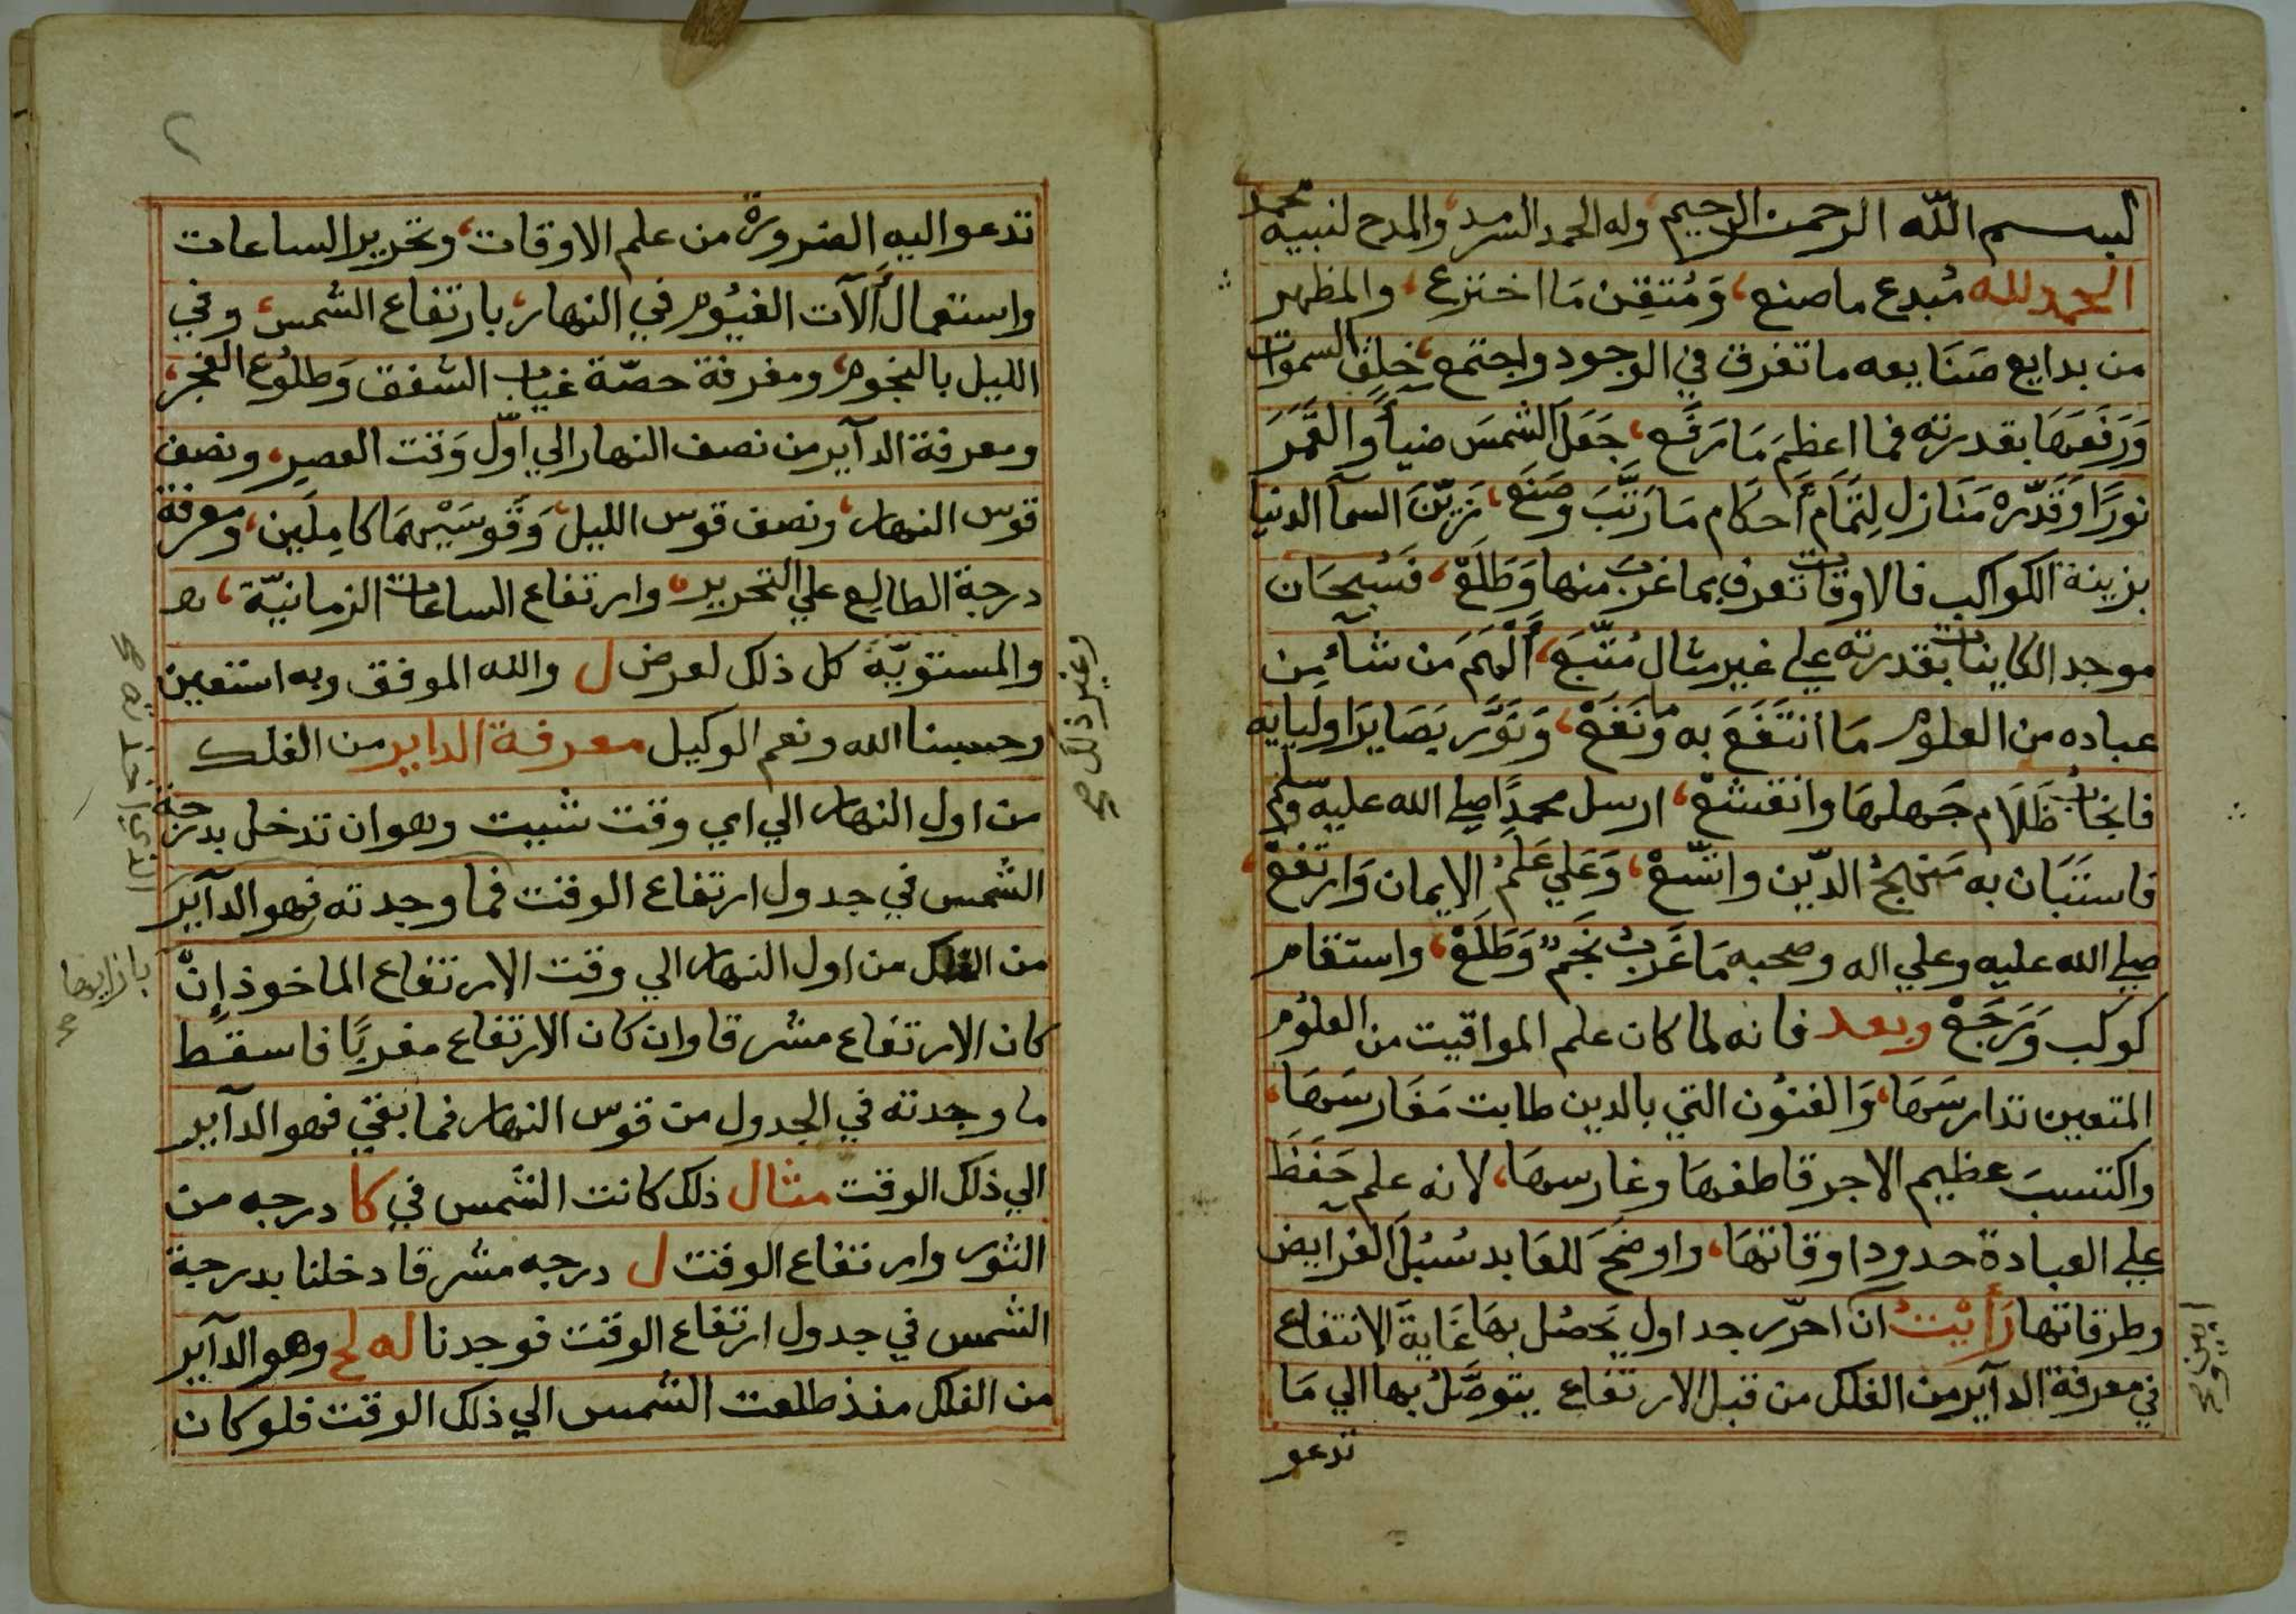 بسم الله الرحمن الرحيم، وله الحمد السرمد، والمدح لنبيه محمد
الحمد لله مُبدع ما صنع، وَمُتقِن مَا اخترع، والمظهر
من بدايع صَنَايعه ما تفرق في الوجود واجتمع، خلق السموات
وَرَفَعَهَا بقدرته فما اعظمَ مَا رَفَع، جَعَلَ الشمسَ ضياً وَالقَمَرَ
نورًا وَقَدَّرَهُ مَنَازل لِتَمَام أَحكَام مَا رَتَّبَ وصَنَع، زيّنَ السمآ الدنيا
بزينة الكواكب فالاوقات تعرف بما غرب منها وَطَلَعْ، فَسُبحَان
موجد الكاينات بقدرته علي غير مثال مُتّبَع، أَلهَمَ مَن شآء مِن
عباده من العلوم مَا انتَفَعَ به ونَفَعْ، وَنَوَّر بَصَايرَ اوليايه
فانجاب ظَلَام جَهلهَا وانقشع، ارسل محمدًا صلي الله عليه وسلم
فاستَبَان به مَنهجُ الدّين واتّسَعْ، وَعَلي عَلَمُ الايمان وَارتفعْ،
صلي الله عليه وعلي اله وصحبه مَا غَرَبَ نَجمٌ وَطَلَعْ، واستقام
كوكب وَرَجَعْ وبعد فانه لما كان علم المواقيت من العلُوم
المتعين تدارسَهَا، وَالفنُون التي بالدين طابت مَغَارسَهَا،
واكتسبَ عظيم الاجر قاطفهَا وغارسهَا، لانه علم حَفَظَ
علي العبادة حدود اوقاتهَا، واوضحَ للعَابد سُبُلَ الفرآيض
وطرقاتها رَأَيْتُ ان احرّر جداول يَحصُل بهَا غَايةَ الانتفاع
في معرفة الدآير من الفلك من قبل الارتفاع يتوصَّلُ بها الي مَا
تدعو
تدعوا اليه الضرورة من علم الاوقات، وتحرير الساعات
واستعمال ألآت الغيُوم في النهار، بارتفاع الشمس، وفي
الليل بالنجوم، ومعرفة حصّة غياب الشفق وَطلُوع الفجر،
ومعرفة الدآير من نصف النهار الي اوّل وَقت العصر، ونصف
قوس النهار، ونصف قوس الليل، وَقَوسَيْهمَا كامِلَين، ومعرفة
درجة الطالِع علي التحرير، وارتفاع الساعات الزمانيّة،
والمستويّة كل ذلك لعرض ل والله الموفق وبه استعين
وغير ذلك صح
وحسبنا الله ونعم الوكيل معرفة الداير من الفلك
من اول النهار الي اي وقت شيت وهو ان تدخل بدرجة
الشمس في جدول ارتفاع الوقت فما وجدته فهو الدآير
من الفلك من اول النهار الي وقت الارتفاع الماخوذ إنْ
بازايها صح
كان الارتفاع مشرقا وان كان الارتفاع مغربًا فاسقط
ما وجدته في الجدول من قوس النهار فما بقي فهو الدآير
الي ذلك الوقت مثال ذلك كانت الشمس في كا درجه من
الثور وارتفاع الوقت ل درجه مشرقا دخلنا بدرجة
الشمس في جدول ارتفاع الوقت فوجدنا له لح وهو الدآير
من الفلك منذ طلعت الشمس الي ذلك الوقت فلو كان